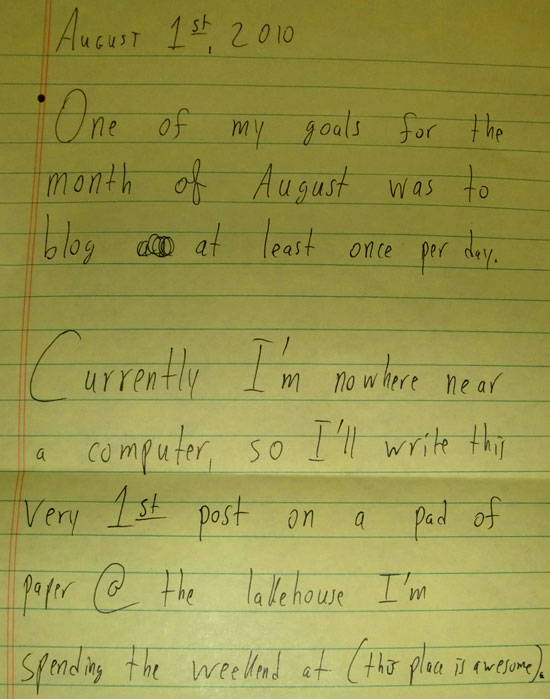 August 1st, 2010
One of my goals for the
month of August was to
blog at least once per day.
Currently I'm nowhere near
a computer, so I'll write this
very 1st post on a pad of
paper @ the lakehouse I'm
spending the weekend at (this place is awesome).